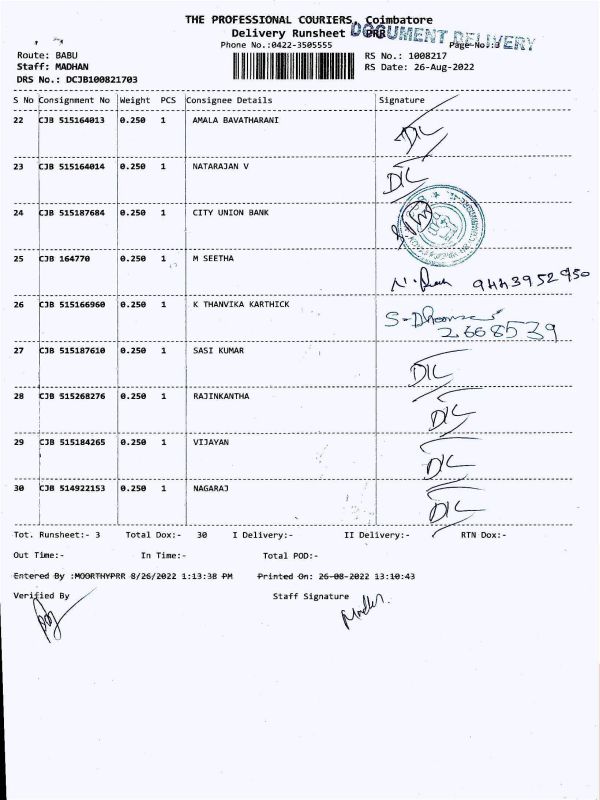 THE PROFESSIONAL COURIERS, Coimbatore
Delivery Runsheet PRR
DOCUMENT DELIVERY
Phone No.:0422-3505555 Page-No.:3
Route: BABU RS No.: 1008217
Staff: MADHAN RS Date: 26-Aug-2022
DRS No.: DCJB100821703
S No Consignment No Weight PCS Consignee Details Signature
22 CJB 515164013 0.250 1 AMALA BAVATHARANI D/L
23 CJB 515164014 0.250 1 NATARAJAN V D/L
24 CJB 515187684 0.250 1 CITY UNION BANK
25 CJB 164770 0.250 1 M SEETHA 9443952950
26 CJB 515166960 0.250 1 K THANVIKA KARTHICK 2668539
27 CJB 515187610 0.250 1 SASI KUMAR D/L
28 CJB 515268276 0.250 1 RAJINKANTHA D/L
29 CJB 515184265 0.250 1 VIJAYAN D/L
30 CJB 514922153 0.250 1 NAGARAJ D/L
Tot. Runsheet:- 3 Total Dox:- 30 I Delivery:- II Delivery:- RTN Dox:-
Out Time:- In Time:- Total POD:-
Entered By :MOORTHYPRR 8/26/2022 1:13:38 PM Printed On: 26-08-2022 13:10:43
Verified By Staff Signature